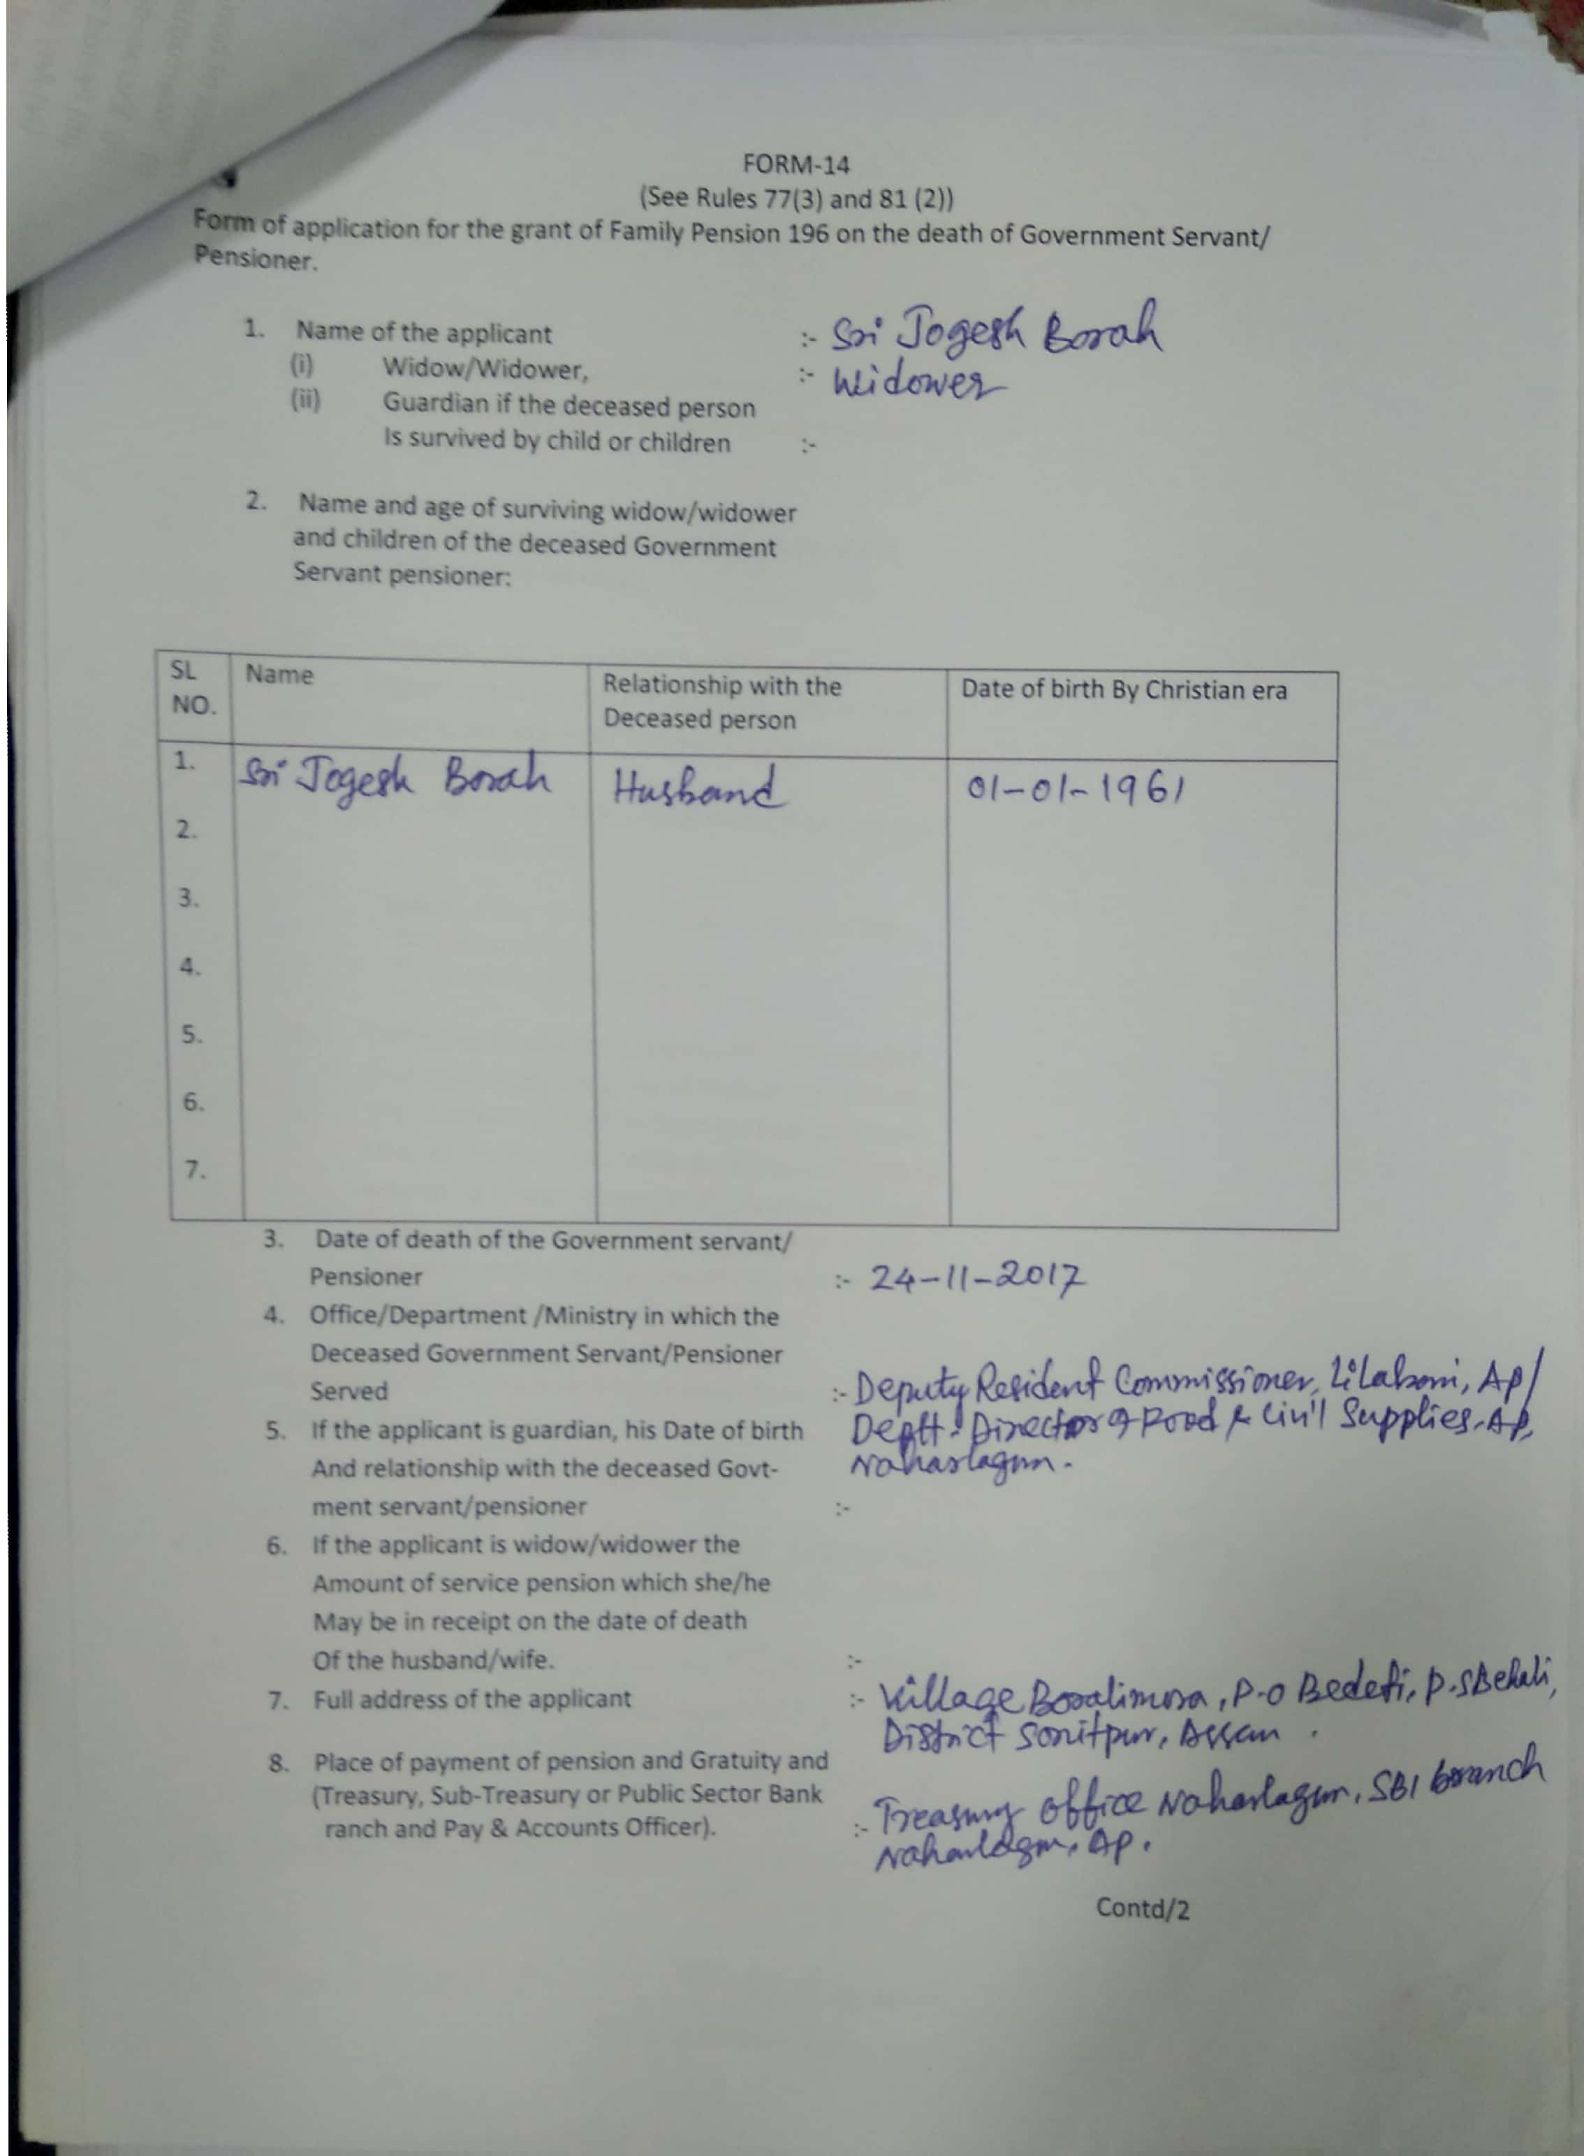 FORM-14
(See Rules 77(3) and 81 (2))
Form of application for the grant of Family Pension 196 on the death of Government Servant/
Pensioner.
1. Name of the applicant :- Sri Jogesh Borah
(i) Widow/Widower, :- Widower
(ii) Guardian if the deceased person
Is survived by child or children :-
2. Name and age of surviving widow/widower
and children of the deceased Government
Servant pensioner:
SL NO. Name Relationship with the Deceased person Date of birth By Christian era
1. Sri Jogesh Borah Husband 01-01-1961
2.
3.
4.
5.
6.
7.
3. Date of death of the Government servant/
Pensioner :- 24-11-2017
4. Office/Department /Ministry in which the
Deceased Government Servant/Pensioner
Served :- Deputy Resident Commissioner, Lilabari, AP/
5. If the applicant is guardian, his Date of birth Deptt. Director of Food & Civil Supplies, AP,
And relationship with the deceased Govt- Naharlagun.
ment servant/pensioner :-
6. If the applicant is widow/widower the
Amount of service pension which she/he
May be in receipt on the date of death
Of the husband/wife. :-
7. Full address of the applicant :- Village Boralimora, P.O Bedeti, P.S Behali,
District Sonitpur, Assam.
8. Place of payment of pension and Gratuity and
(Treasury, Sub-Treasury or Public Sector Bank
ranch and Pay & Accounts Officer). :- Treasury office Naharlagun, SBI branch
Naharlagun, AP.
Contd/2